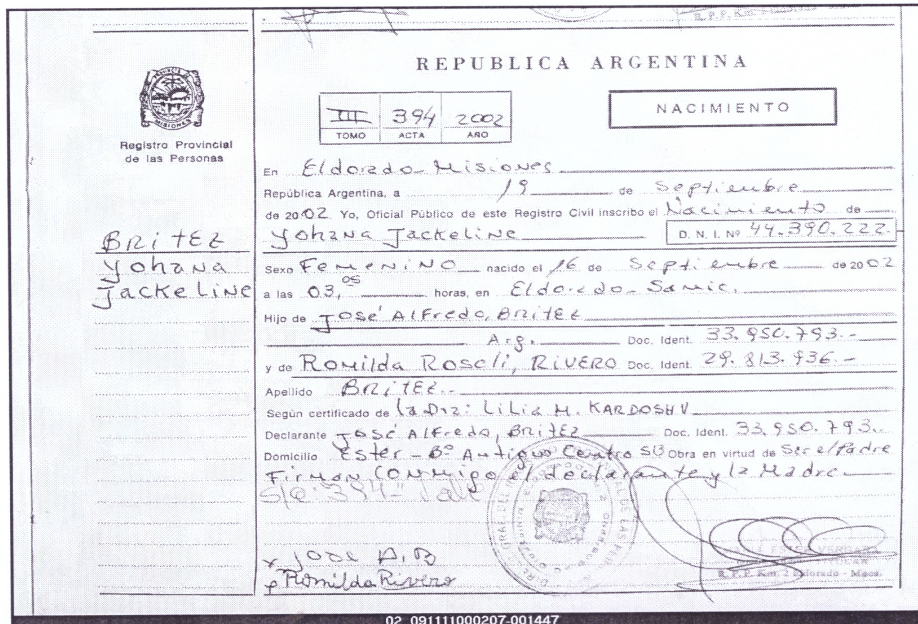 R.P.P. Km.
REPUBLICA ARGENTINA
NACIMIENTO
III 394 2002
TOMO ACTA AÑO
MISIONES
Registro Provincial
de las Personas
En Eldorado - Misiones
República Argentina, a 19 de Septiembre
de 2002 Yo, Oficial Público de este Registro Civil inscribo el Nacimiento de
Yohana Jackeline D.N.I. Nº 44.390.222.-
BRITEZ
Yohana
Jackeline
Sexo Femenino nacido el 16 de Septiembre de 2002
a las 03,05 horas, en Eldorado - Samic.
Hijo de José Alfredo, BRITEZ
Arg. Doc. Ident. 33.950.793.-
y de Romilda Roseli, RIVERO Doc. Ident. 29.813.936.-
Apellido BRITEZ.-
Según certificado de la Dra: Lilia M. KARDOSHV
Declarante José Alfredo, BRITEZ Doc. Ident. 33.950.793.-
Domicilio Ester - Bº Antiguo Centro Obra en virtud de Ser el Padre
Firman conmigo el declarante y la Madre
José A, B
Romilda Rivero
R.P.P. Km. 2 Eldorado - Mnes.
02_091111000207-001447